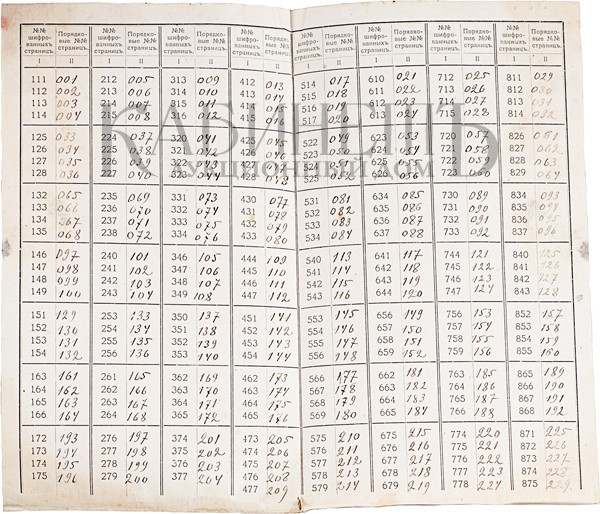 №№ шифро- ванныхъ страницъ. Порядко- вые №№ страницъ. №№ шифро- ванныхъ страницъ. Порядко- вые №№ страницъ. №№ шифро- ванныхъ страницъ. Порядко- вые №№ страницъ. №№ шифро- ванныхъ страницъ. Порядко- вые №№ страницъ. №№ шифро- ванныхъ страницъ. Порядко- вые №№ страницъ. №№ шифро- ванныхъ страницъ. Порядко- вые №№ страницъ. №№ шифро- ванныхъ страницъ. Порядко- вые №№ страницъ. №№ шифро- ванныхъ страницъ. Порядко- вые №№ страницъ.
I II I II I II I II I II I II I II I II
111 001 212 005 313 009 412 013 514 017 610 021 712 025 811 029
112 002 213 006 314 010 413 014 515 018 611 022 713 026 812 030
113 003 214 007 315 011 414 015 516 019 612 023 714 027 813 031
114 004 215 008 316 012 415 016 517 020 613 024 715 028 814 032
КАБИНЕТЪ
АУКЦИОННЫЙ ДОМ
125 033 224 037 320 041 424 045 522 049 623 053 720 057 826 061
126 034 225 038 321 042 425 046 523 050 624 054 721 058 827 062
127 035 226 322 524 625 055 722 059 828 063
128 036 227 040 323 044 048 525 052 626 056 723 060 829 064
132 065 235 069 331 073 430 077 531 081 634 085 730 089 834 093
133 066 236 070 332 074 431 078 532 082 635 086 731 090 835 094
134 067 237 071 333 075 432 079 533 083 636 087 732 091 836 095
135 068 238 072 334 076 433 080 534 084 637 088 733 092 837 096
146 097 240 101 346 105 444 109 540 113 641 117 744 121 840 125
147 098 241 102 347 106 445 110 541 114 642 118 745 122 841 126
148 099 242 103 348 107 446 111 542 115 643 119 746 123 842 127
149 100 243 104 349 108 447 112 543 116 644 120 747 124 843 128
151 129 253 133 350 137 451 141 553 145 656 149 756 153 852 157
152 130 254 134 351 138 452 142 554 146 657 150 757 154 853 158
153 131 255 135 352 139 453 143 555 147 658 151 758 155 854 159
154 132 256 136 353 140 454 144 556 148 659 152 759 156 855 160
163 161 261 165 362 169 462 173 566 177 662 181 763 185 865 189
164 162 262 166 363 170 463 174 567 178 663 182 764 186 866 190
165 163 263 167 364 171 464 175 568 179 664 183 765 187 867 191
166 164 264 168 365 172 465 176 569 180 665 184 766 188 868 192
172 193 276 197 374 201 473 205 575 210 675 215 774 220 871 225
173 194 277 198 375 202 474 206 576 211 676 216 775 221 872 226
174 195 278 199 376 203 475 207 577 212 677 217 776 222 873 227
175 196 279 200 377 204 476 208 578 213 678 218 777 223 874 228
477 209 579 214 679 219 778 224 875 229